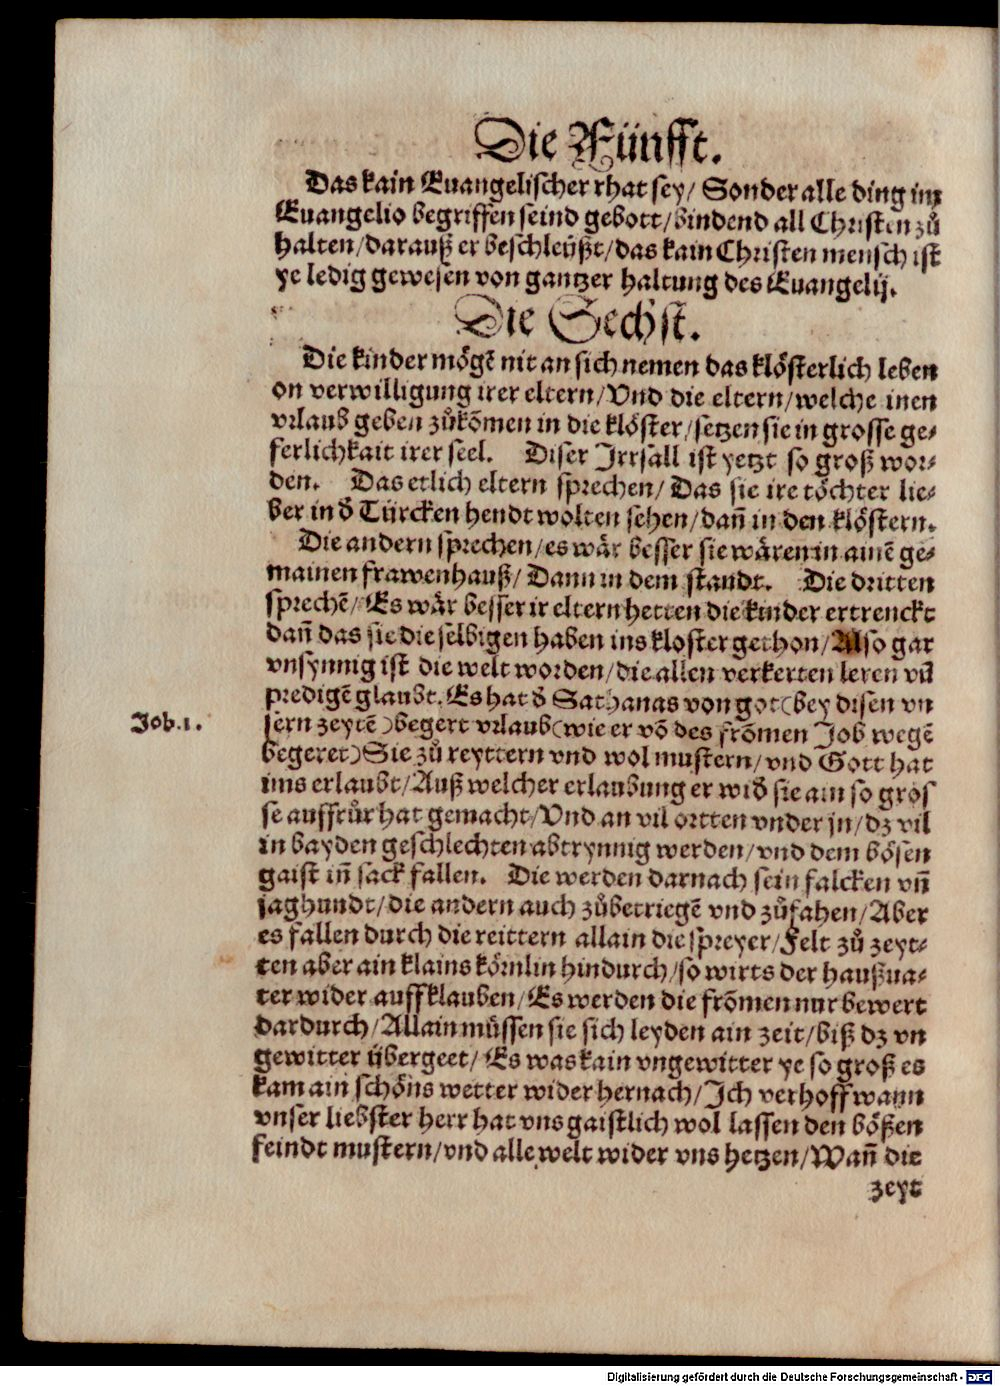 Die Fünfft.
Das kain Euangelischer rhat sey/ Sonder alle ding im
Euangelio begriffen seind gebott/bindend all Christen zů
halten/darauß er beschleüßt/das kain Christen mensch ist
ye ledig gewesen von gantzer haltung des Euangelij.
Die Sechst.
Die kinder mögẽ nit an sich nemen das klösterlich leben
on verwilligung irer eltern/Vnd die eltern/welche inen
vrlaub geben zůkõmen in die klöster/setzen sie in grosse ge⸗
ferlichkait irer seel. Diser Jrrsall ist yetzt so groß wor⸗
den. Das etlich eltern sprechen/ Das sie ire töchter lie⸗
ber in d̄ Türcken hendt wolten sehen/dañ in den klöstern.
Die andern sprechen/es wär besser sie wären in ainẽ ge⸗
mainen frawenhauß/ Dann in dem standt. Die dritten
sprechẽ/Es wär besser ir eltern hetten die kinder ertrenckt
dañ das sie die selbigen haben ins kloster gethon/Also gar
vnsynnig ist die welt worden/die allen verkerten leren vñ
predigẽ glaubt. Es hat d̄ Sathanas von got(bey disen vn
sern zeytẽ)begert vrlaub(wie er võ des frõmen Job wegẽ
Job.1.
begeret)Sie zů reyttern vnd wol mustern/vnd Gott hat
ims erlaubt/Auß welcher erlaubung er wid̄ sie ain so gros
se auffrůr hat gemacht/Vnd an vil ortten vnder jn/dz vil
in bayden geschlechten abtrynnig werden/vnd dem bösen
gaist iñ sack fallen. Die werden darnach sein falcken vñ
jaghundt/die andern auch zůbetriegẽ vnd zůfahen/Aber
es fallen durch die reittern allain die spreyer/Felt zů zeyt⸗
ten aber ain klains körnlin hindurch/so wirts der haußua⸗
ter wider auffklauben/Es werden die frõmen nur bewert
dardurch/Allain müssen sie sich leyden ain zeit/biß dz vn
gewitter übergeet/Es was kain vngewitter ye so groß es
kam ain schöns wetter wider hernach/Jch verhoff wann
vnser liebster herr hat vns gaistlich wol lassen den bößen
feindt mustern/vnd alle welt wider vns hetzen/Wañ die
zeyt
Digitalisierung gefördert durch die Deutsche Forschungsgemeinschaft - DFG